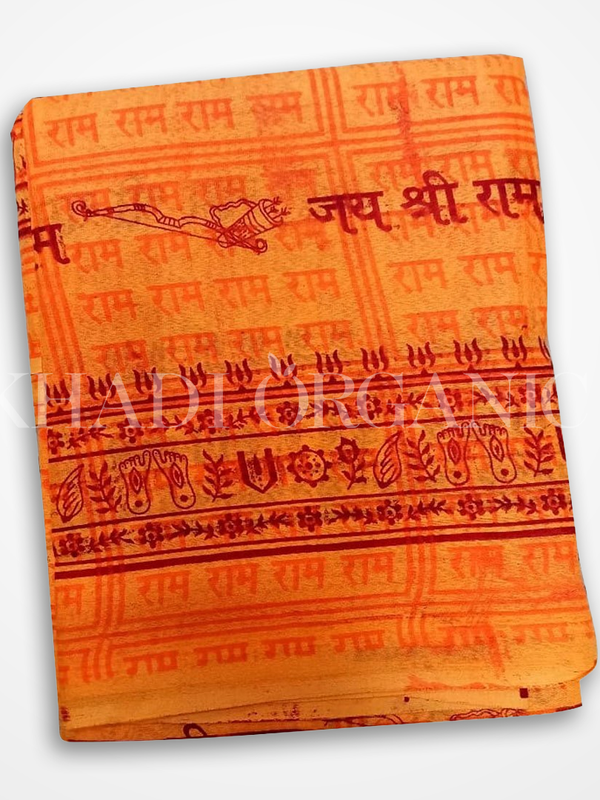 राम राम राम राम राम राम राम
राम राम राम राम राम राम
जय श्री राम
म राम राम राम राम राम राम
राम राम राम राम राम राम
राम राम राम राम राम राम
KHADI ORGANIC
म राम राम राम राम राम राम
राम राम राम राम राम